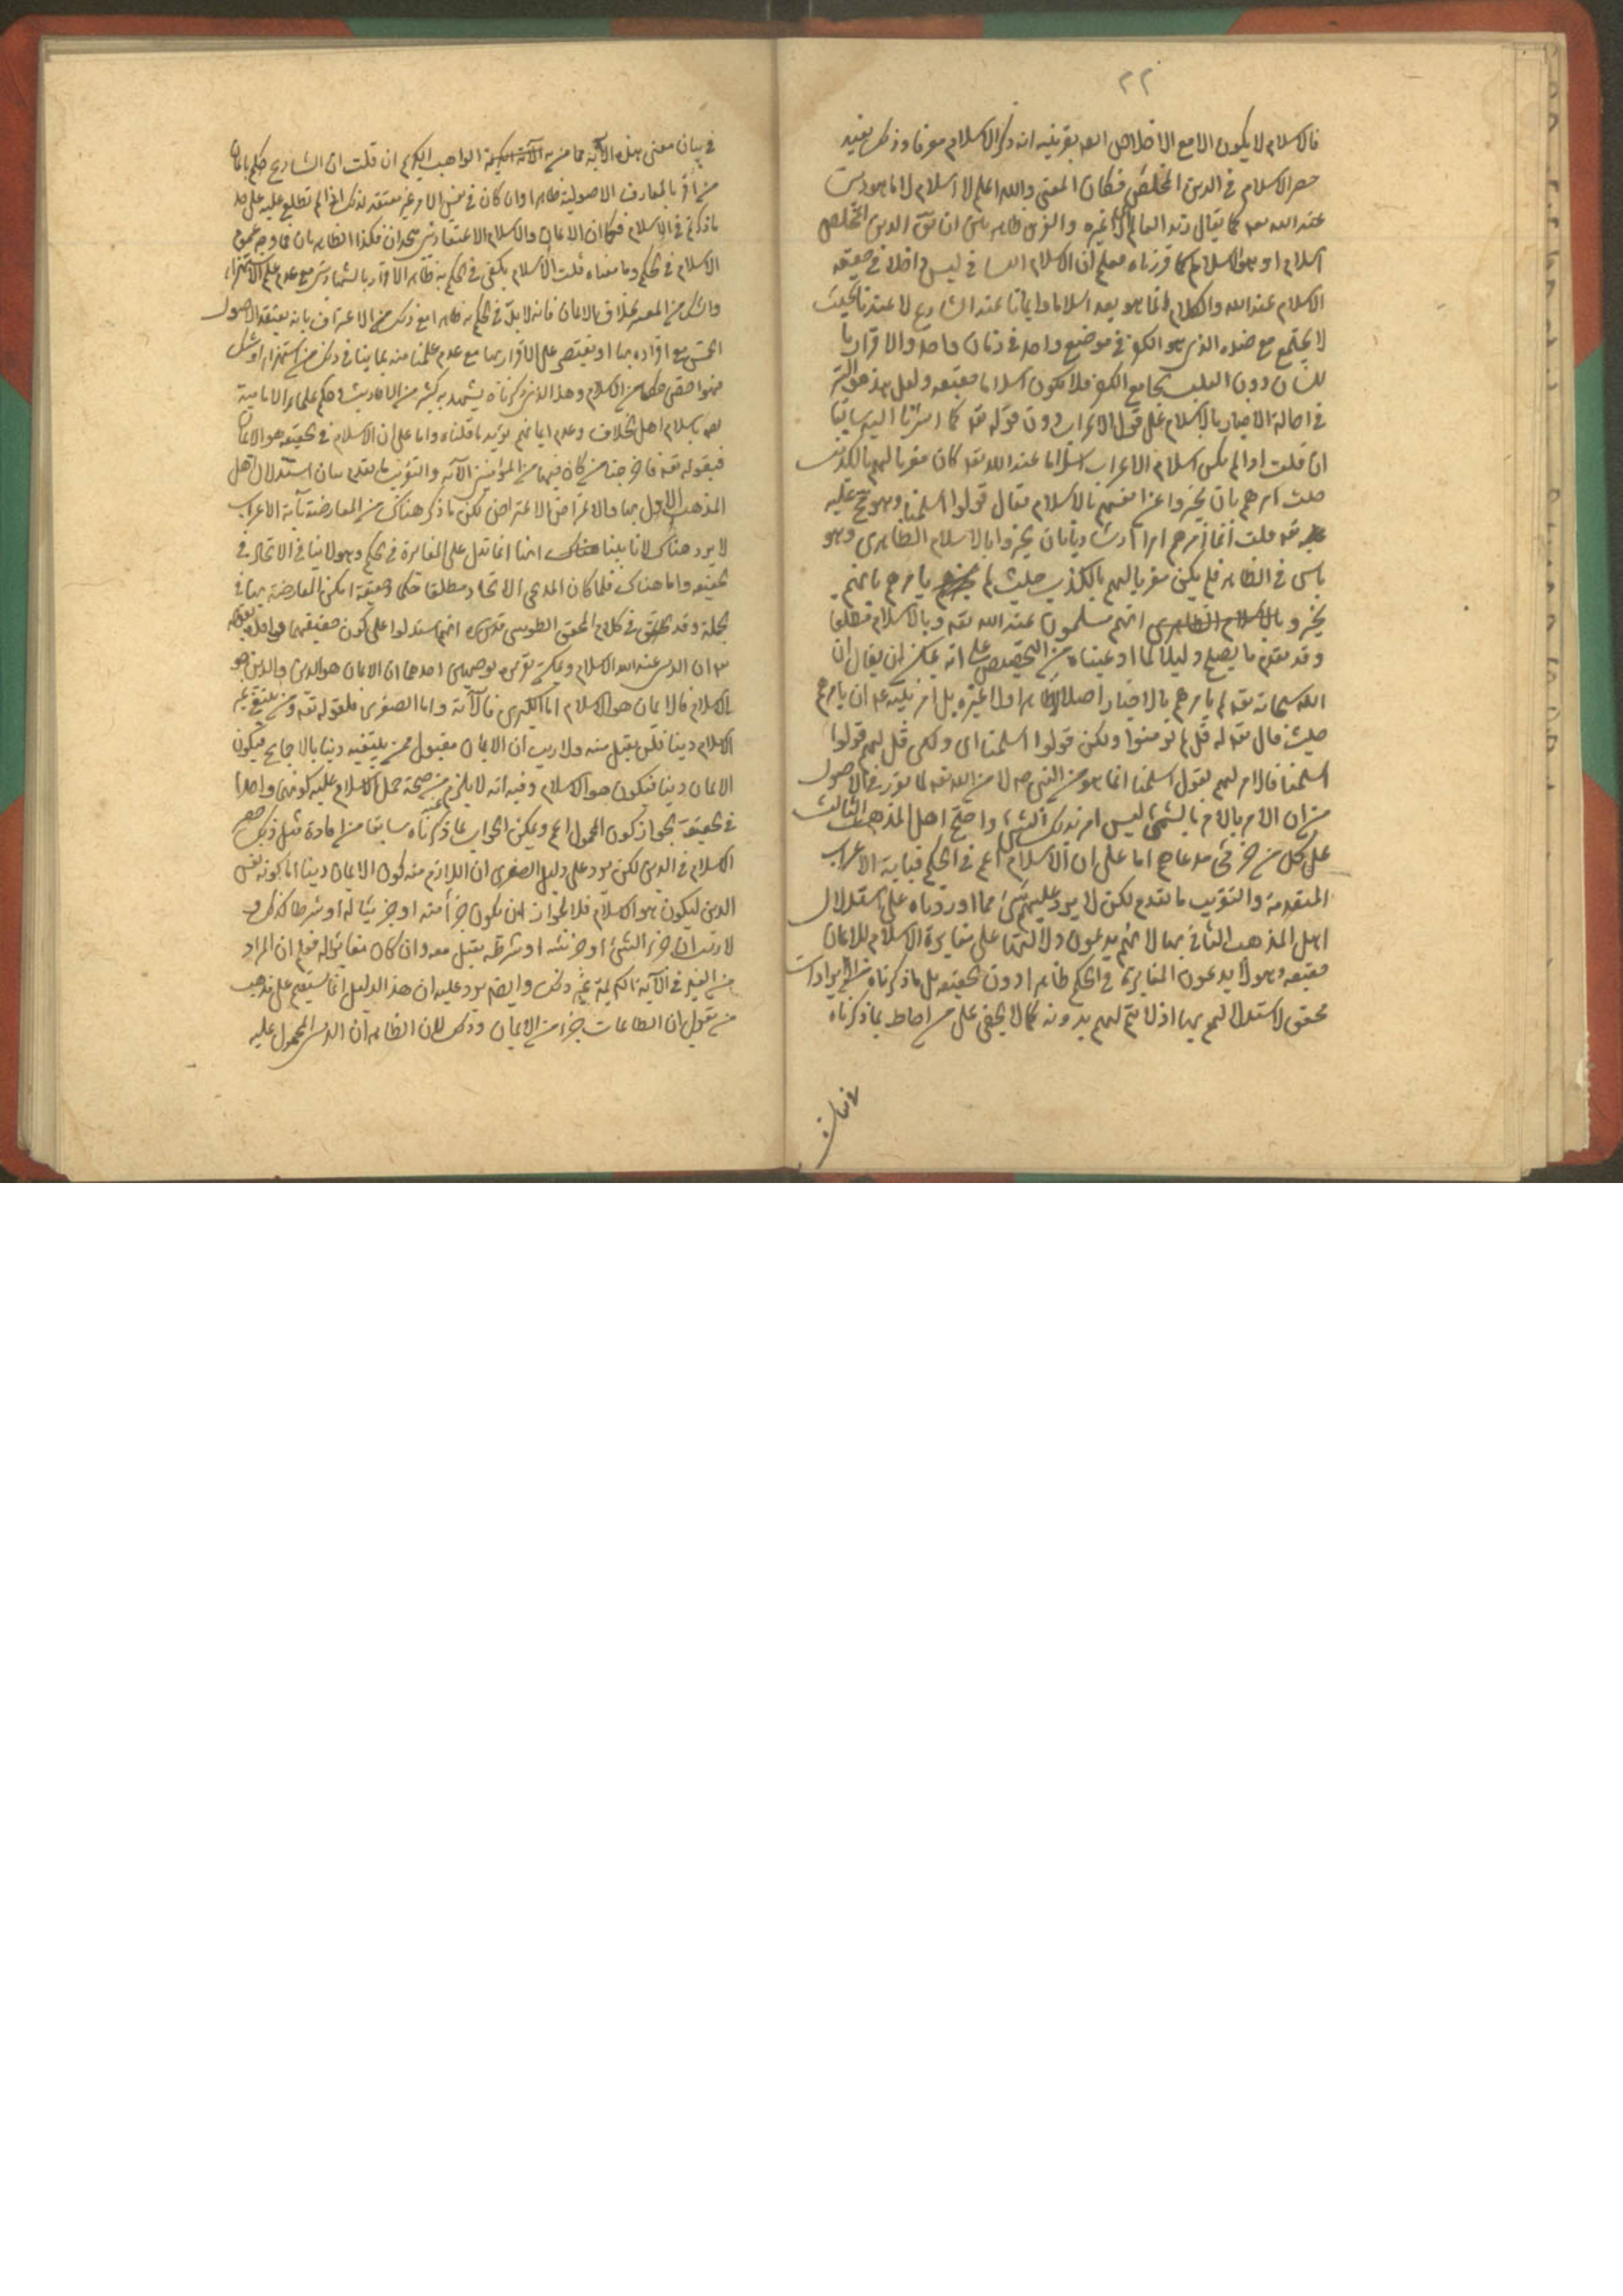 ٢٢
فالاسلام لا يكون الا مع الاخلاص بقرينة انه ذكر الاسلام معرفا وذلك يفيد
حصر الاسلام في الدين المخلص فكان المعنى والله اعلم لا اسلام الا ما هو دين
عند الله تعه كما يقال زيد العالم اي لا غيره والفرق ظاهر بين ان يق الدين المخلص
اسلام او هو الاسلام كما قررناه فعلم ان الاسلام اللساني ليس داخلا في حقيقة
الاسلام عند الله والكلام انما هو بعد اسلاما وايمانا عند الشارع لا عندنا بحيث
لا يجتمع مع ضده الذي هو الكفر في موضع واحد في زمان واحد والاقرار با
للسان دون القلب يجامع الكفر فلا يكون اسلاما حقيقة ولعل هذا هو السر
في احالة الاخبار بالاسلام على قول الاعراب دون قوله تعه كما اشرنا اليه سابقا
ان قلت اذا لم يكن اسلام الاعراب اسلاما عند الله تعه كان مغريا لهم بالكذب
حيث امرهم بان يخبروا عن انفسهم بالاسلام فقال قولوا اسلمنا وهو قبيح عليه
تعه قلت انما امرهم ارشاديا بان يخبروا بالاسلام الظاهري وهو
باس في الظاهر فلم يكن مغريا لهم بالكذب حيث لم يامرهم بانهم
يخبروا بالاسلام انهم مسلمون عند الله تعه وبالاسلام مطلقا
وقد تقدم ما يصلح دليلا لما ادعيناه من التخصيص على انه يمكن ان يقال ان
الله سبحانه تعه لم يامرهم بالاخبار اصلا لا ظاهرا ولا غيره بل امر نبيه ان يامرهم
حيث قال تعه له قل لم تؤمنوا ولكن قولوا اسلمنا اي ولكن قل لهم قولوا
اسلمنا فالامر لهم بقول اسلمنا انما هو من النبي ص لا من الله تعه لما تقرر في الاصول
من ان الامر بالامر بالشيء ليس امر بذلك الشيء واحتج اهل المذهب الثالث
على كل من جزئي مدعاهم اما على ان الاسلام اعم في الحكم فباية الاعراب
المتقدمة والتقريب ما تقدم لكن لا يرد عليهم شيء مما اوردناه على استدلال
اهل المذهب الثاني بها لانهم يدعون دلالتها على مغايرة الاسلام للايمان
حقيقة وهولا يدعون المغايرة في الحكم ظاهرا دون الحقيقة بل ما ذكرناه من الايرادات
محقق لاستدلالهم بها اذ لا يتم لهم بدونه كما لا يخفى على من احاط بما ذكرناه
في بيان معنى هذه الآية مما من به الواهب الكريم ان قلت ان الشارع حكم بايمان
من اقر بالمعارف الاصولية ظاهرا وان كان في نفس الامر غير معتقد لذلك اذا لم نطلع عليه على حد
ما ذكرتم في الاسلام فكما ان الايمان والاسلام الاعتقاديين متحدان فكذا الظاهريان فما وجه عموم
الاسلام في الحكم وما معناه قلت الاسلام يكفي في الحكم به ظاهر الاقرار بالشهادتين مع عدم علم الاستهزاء
والشك من المقر بخلاف الايمان فانه لا بد في الحكم به ظاهرا مع ذلك من الاعتراف بانه يعتقد الاصول
الخمس مع اقراره بها او يقتصر على الاقرار بها مع عدم علمنا منه بما ينافي ذلك من استهزاء او شك
فهو اخص حكما من الاسلام وهذا الذي ذكرناه يشهد به كثير من الاحاديث وحكم علماء الامامية
باسلام اهل الخلاف وعدم ايمانهم يؤيد ما قلناه واما على ان الاسلام في الحقيقة هو الايمان
فبقوله تعه فاخرجنا من كان فيها من المؤمنين الآية والتقريب ما تقدم بيان استدلال اهل
المذهب الاول بها والاعتراض الاعتراض لكن ما ذكر هناك من المعارضة بآية الاعراب
لا يرد هناك لانا بينا انها انما تدل على المغايرة في الحكم وهو لا ينافي الاتحاد في
الحقيقة واما هناك فلما كان المدعى الاتحاد مطلقا حكما وحقيقة امكن المعارضة بها في
الجملة وقد تحقق في كلام المحقق الطوسي قدس سره انهم استدلوا على كون حقيقتهما واحدة بقوله
تعه ان الدين عند الله الاسلام ويمكن تقريره بوجهين احدهما ان الايمان هو الدين والدين هو
الاسلام فالايمان هو الاسلام اما الكبرى فللآية واما الصغرى فلقوله تعه ومن يبتغ غير
الاسلام دينا فلن يقبل منه ولا ريب ان الايمان مقبول ممن يبتغيه دينا بالاجماع فيكون
الايمان دينا فيكون هو الاسلام وفيه انه لا يلزم من صحة حمل الاسلام عليه كونهما واحدا
في الحقيقة لجواز كون المحمول اعم ويمكن الجواب عنه بما ذكرناه سابقا من افادة مثل ذلك حصر
الاسلام في الدين لكن يرد على دليل الصغرى ان اللازم منه كون الايمان دينا اما كونه نفس
الدين ليكون هو الاسلام فلا لجواز ان يكون جزأ منه او جزئيا له او شرطا كذلك و
لا ريب ان جزء الشيء او جزئيه او شرطه يقبل معه وان كان مغايرا له فعلم ان المراد
من الغير في الآية الكريمة غير ذلك وايضا يرد عليه ان هذا الدليل انما يستقيم على مذهب
من يقول ان الطاعات جزء من الايمان وذلك لان الظاهر ان الدين المحمول عليه